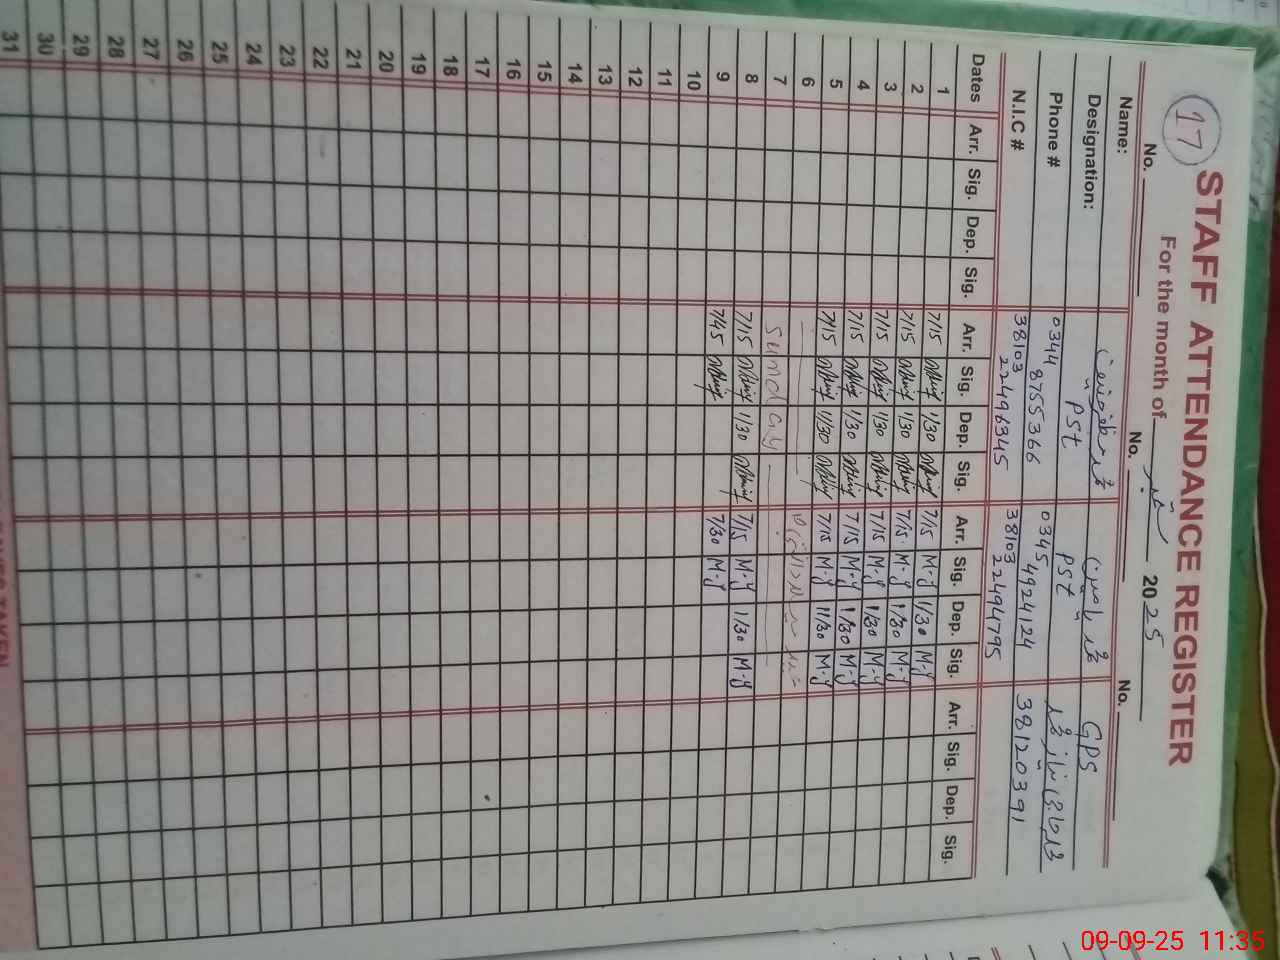 17
STAFF ATTENDANCE REGISTER
For the month of ستمبر 2025
No. No. No.
Name: محمد یامین GPS
Designation: PST PST
Phone # 0344 8755366 0345 4924124
N.I.C # 38103 22496345 38103 22494795 38120391
Dates Arr. Sig. Dep. Sig. Arr. Sig. Dep. Sig. Arr. Sig. Dep. Sig. Arr. Sig. Dep. Sig.
1 7/15 1/30 7/15 M-Y 1/30 M-Y
2 7/15 1/30 7/15 M-Y 1/30 M-Y
3 7/15 1/30 7/15 M-Y 1/30 M-Y
4 7/15 1/30 7/15 M-Y 1/30 M-Y
5 7/15 11/30 7/15 M-Y 11/30 M-Y
6
7 Sunday
8 7/15 1/30 7/15 M-Y 1/30 M-Y
9 7/45 7/30 M-Y
10
11
12
13
14
15
16
17
18
19
20
21
22
23
24
25
26
27
28
29
30
31
09-09-25 11:35